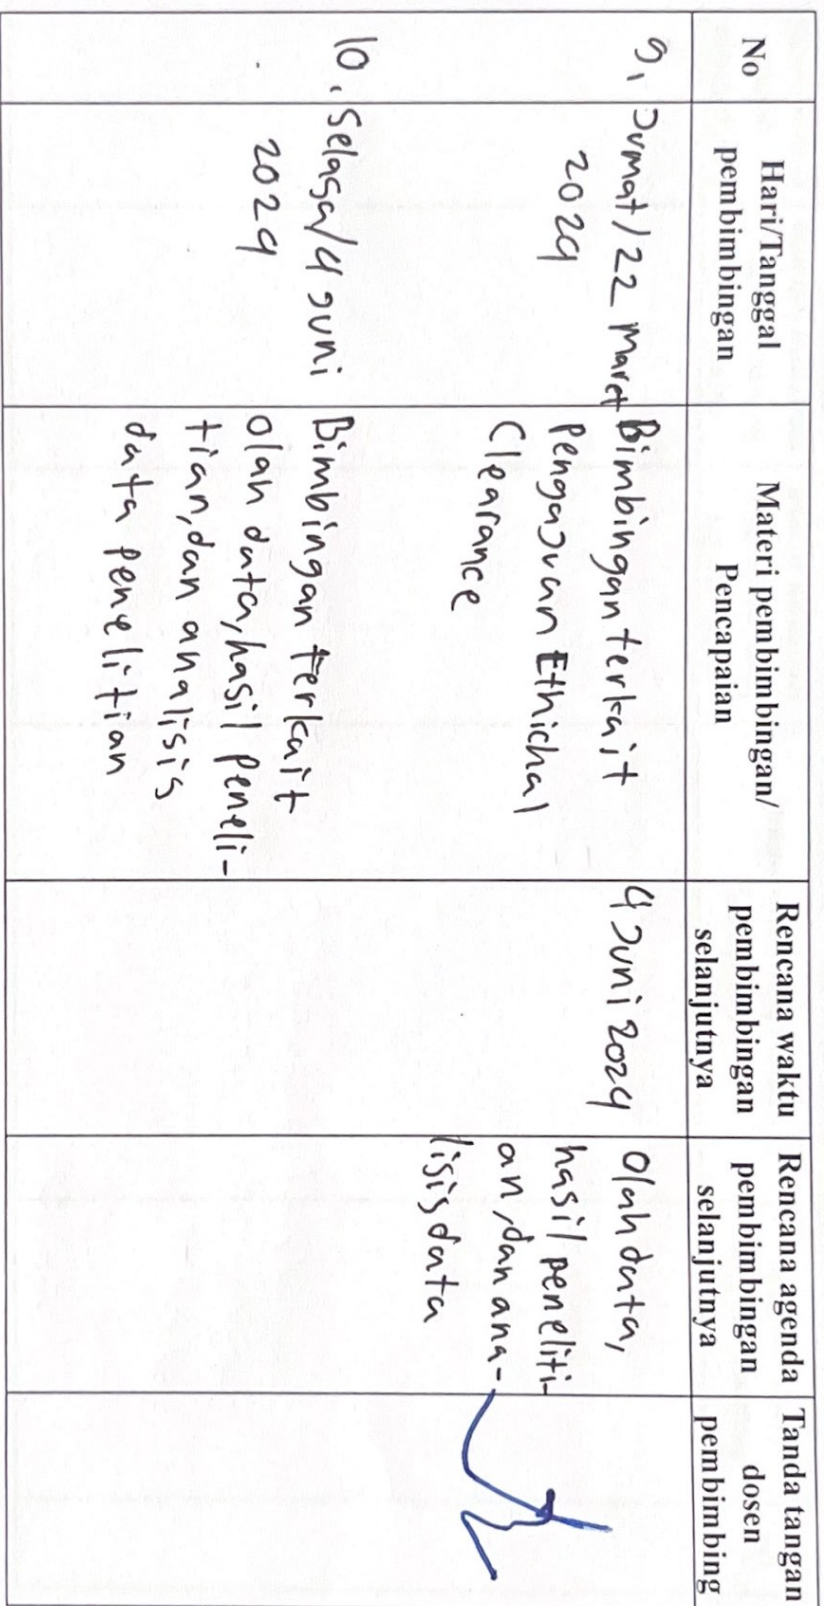 No
Hari/Tanggal
pembimbingan
Materi pembimbingan/
Pencapaian
Rencana waktu
pembimbingan
selanjutnya
Rencana agenda
pembimbingan
selanjutnya
Tanda tangan
dosen
pembimbing
9.
Jumat/22 Maret
2024
Bimbingan terkait
pengajuan Ethichal
Clearance
4 Juni 2024
Olah data,
hasil peneliti-
an, dan ana-
lisis data
10.
Selasa/4 Juni
2024
Bimbingan terkait
olah data, hasil peneli-
tian, dan analisis
data penelitian